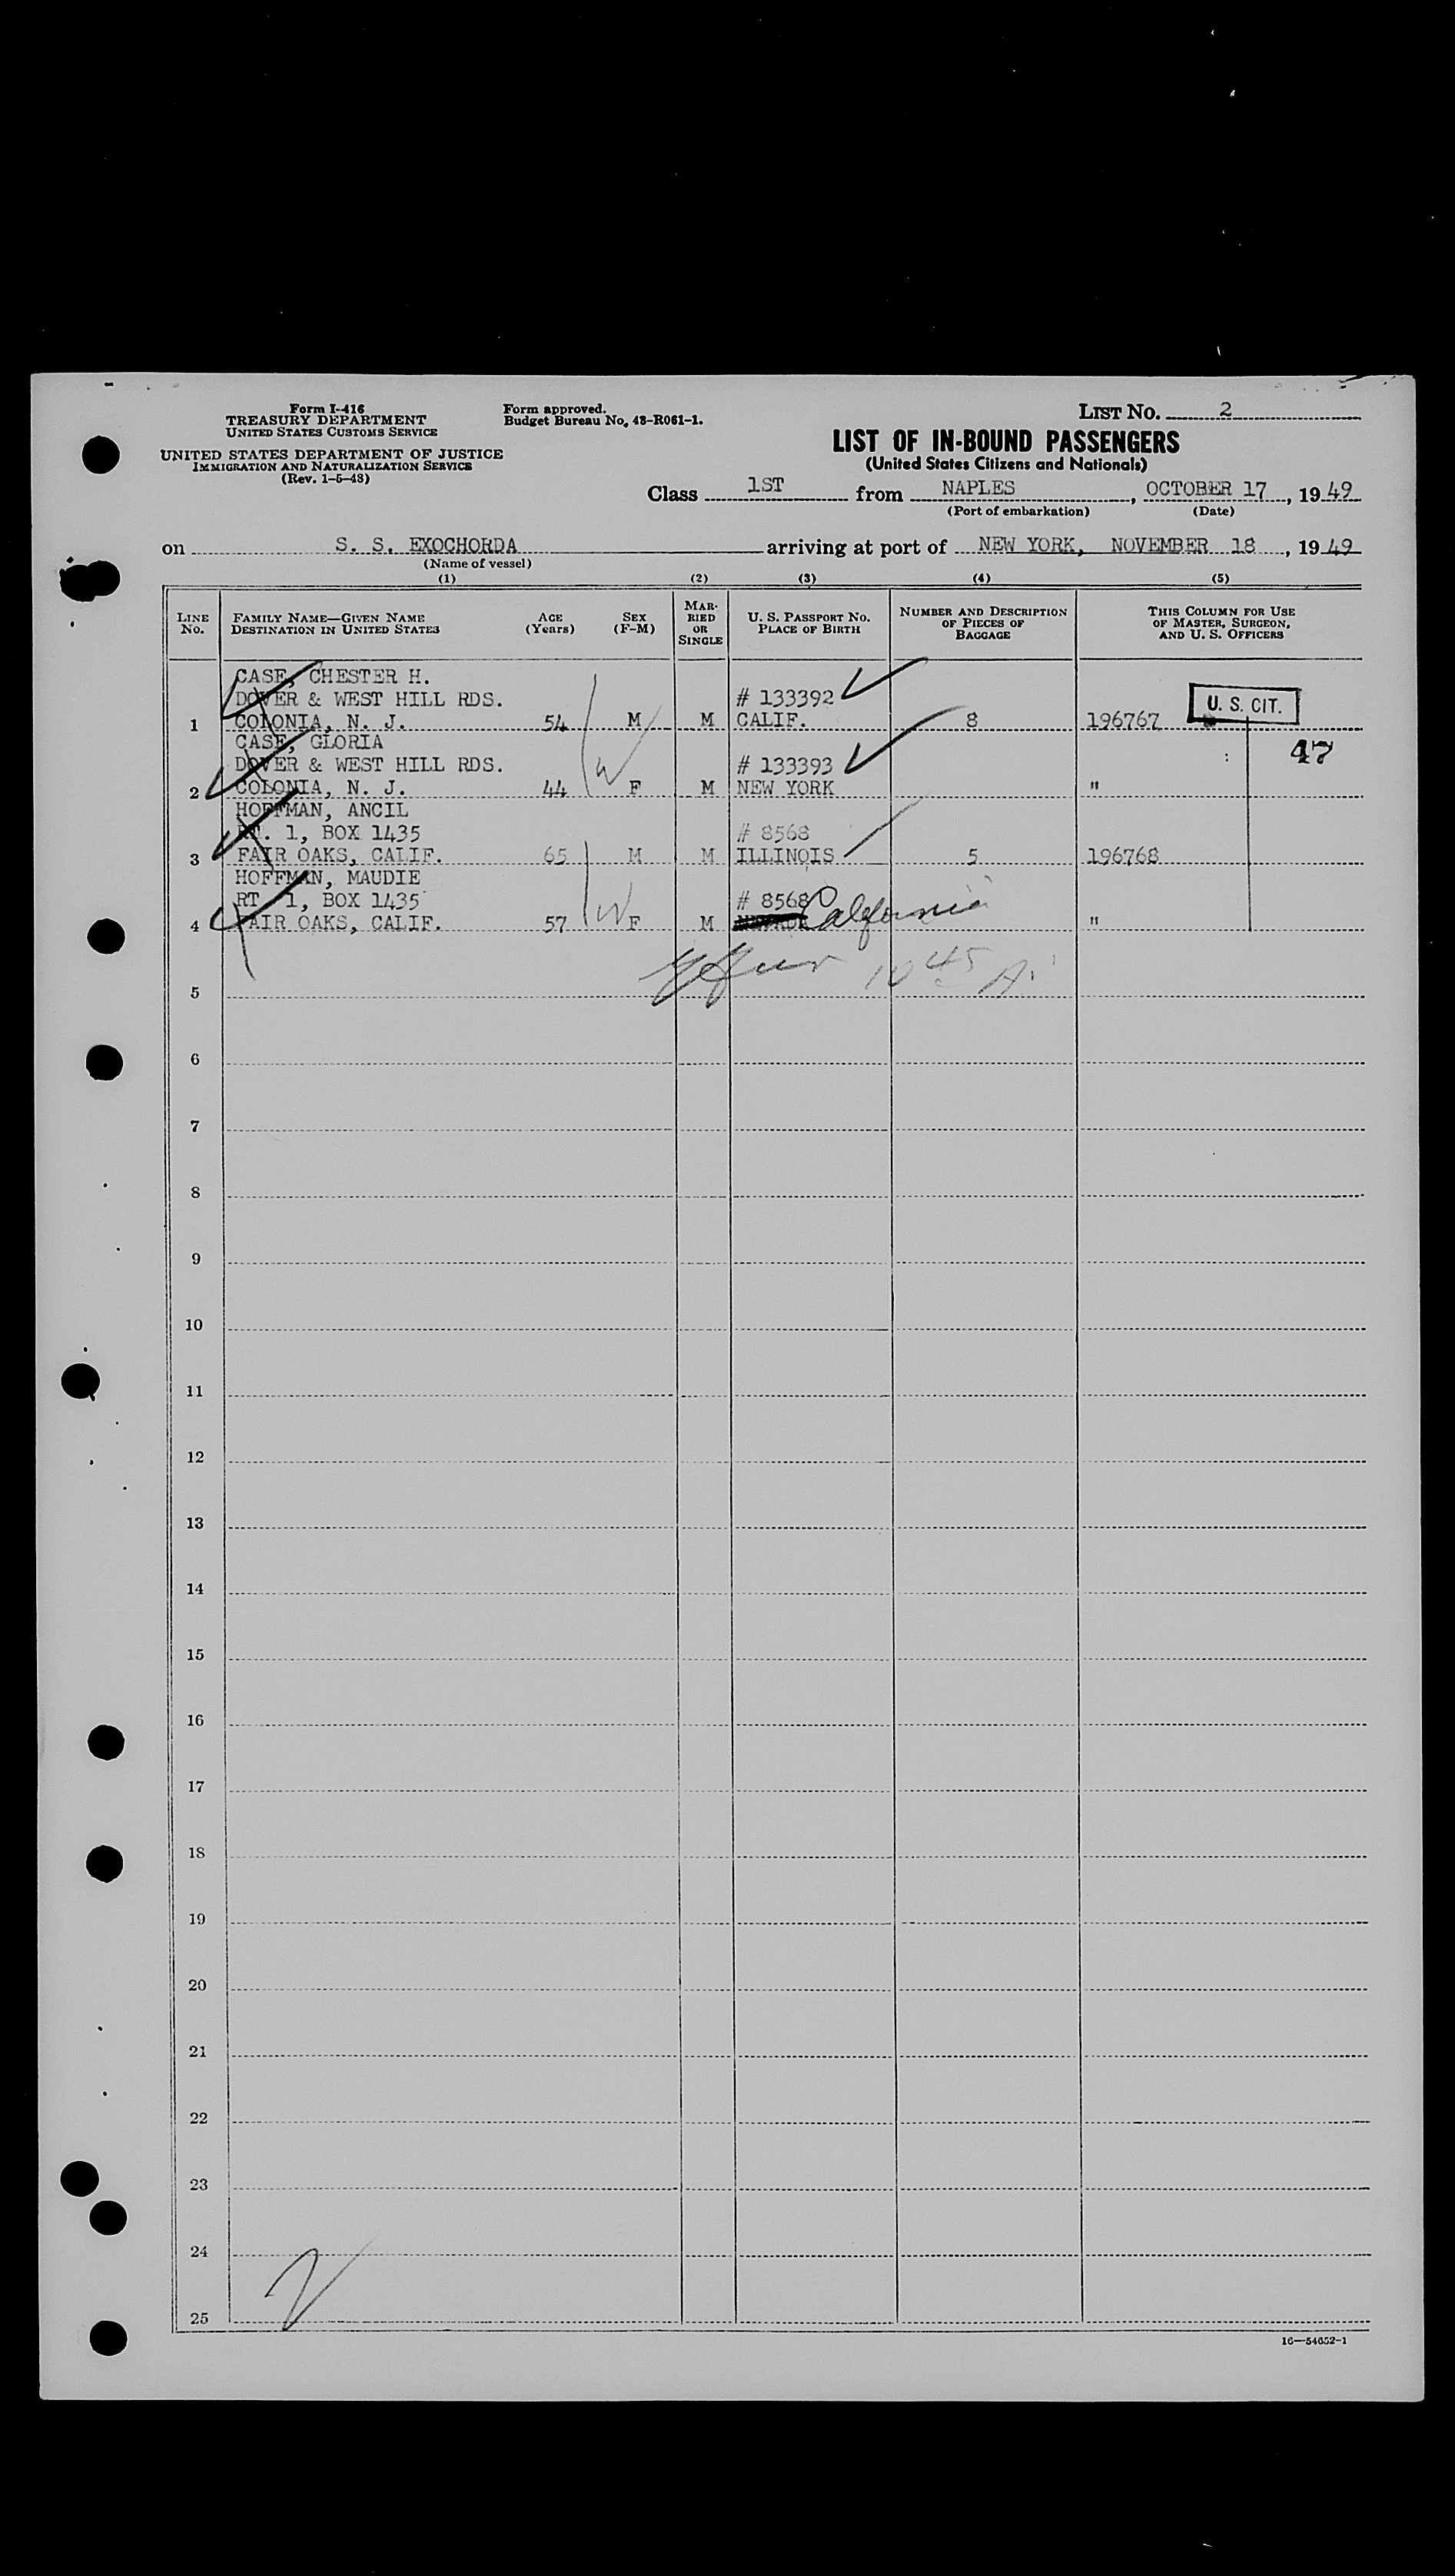 Form I-416
TREASURY DEPARTMENT
UNITED STATES CUSTOMS SERVICE
UNITED STATES DEPARTMENT OF JUSTICE
IMMIGRATION AND NATURALIZATION SERVICE
(Rev. 1-5-48)
Form approved.
Budget Bureau No. 43-R061-1.
LIST NO. 2
LIST OF IN-BOUND PASSENGERS
(United States Citizens and Nationals)
Class 1ST from NAPLES, OCTOBER 17, 1949
(Port of embarkation) (Date)
on S. S. EXOCHORDA arriving at port of NEW YORK, NOVEMBER 18, 1949
(Name of vessel)
(1) (2) (3) (4) (5)
LINE NO.
FAMILY NAME—GIVEN NAME
DESTINATION IN UNITED STATES
AGE (Years)
SEX (F-M)
MARRIED OR SINGLE
U. S. PASSPORT NO.
PLACE OF BIRTH
NUMBER AND DESCRIPTION
OF PIECES OF
BAGGAGE
THIS COLUMN FOR USE
OF MASTER, SURGEON,
AND U. S. OFFICERS
CASE, CHESTER H.
DOVER & WEST HILL RDS. # 133392 U. S. CIT.
1 COLONIA, N. J. 54 M M CALIF. 8 196767
CASE, GLORIA 47
DOVER & WEST HILL RDS. W # 133393
2 COLONIA, N. J. 44 F M NEW YORK "
HOFFMAN, ANCIL
RT. 1, BOX 1435 # 8568
3 FAIR OAKS, CALIF. 65 M M ILLINOIS 5 196768
HOFFMAN, MAUDIE
RT 1, BOX 1435 W # 8568
4 FAIR OAKS, CALIF. 57 F M California "
10 45 A
5
6
7
8
9
10
11
12
13
14
15
16
17
18
19
20
21
22
23
24
25
16—54652-1